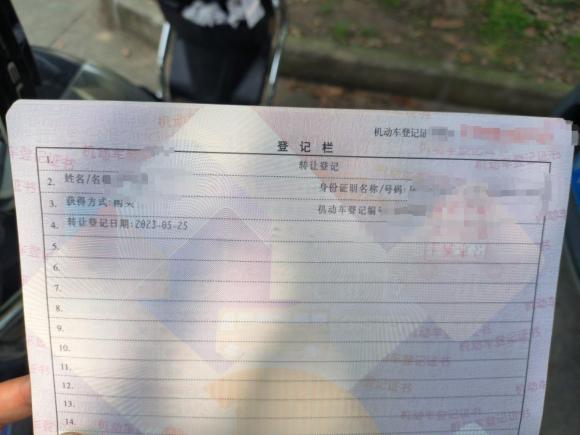 机动车登记证
登记栏
1. 转让登记
2. 姓名/名称 身份证明名称/号码:
3. 获得方式:购买 机动车登记编号
4. 转让登记日期:2023-05-25
5.
6.
7.
8.
9.
10.
11.
12.
13.
14.